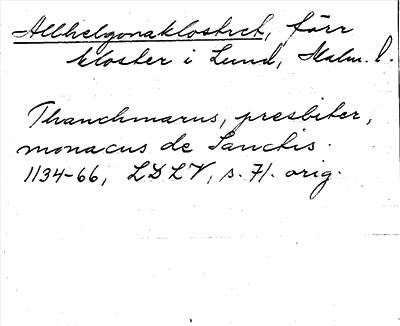 Allhelgonaklostret, förr
kloster i Lund, Malm. l.
Thanchmarus, presbiter,
monacus de Sanctis.
1134-66, LDLV, s. 71. orig.